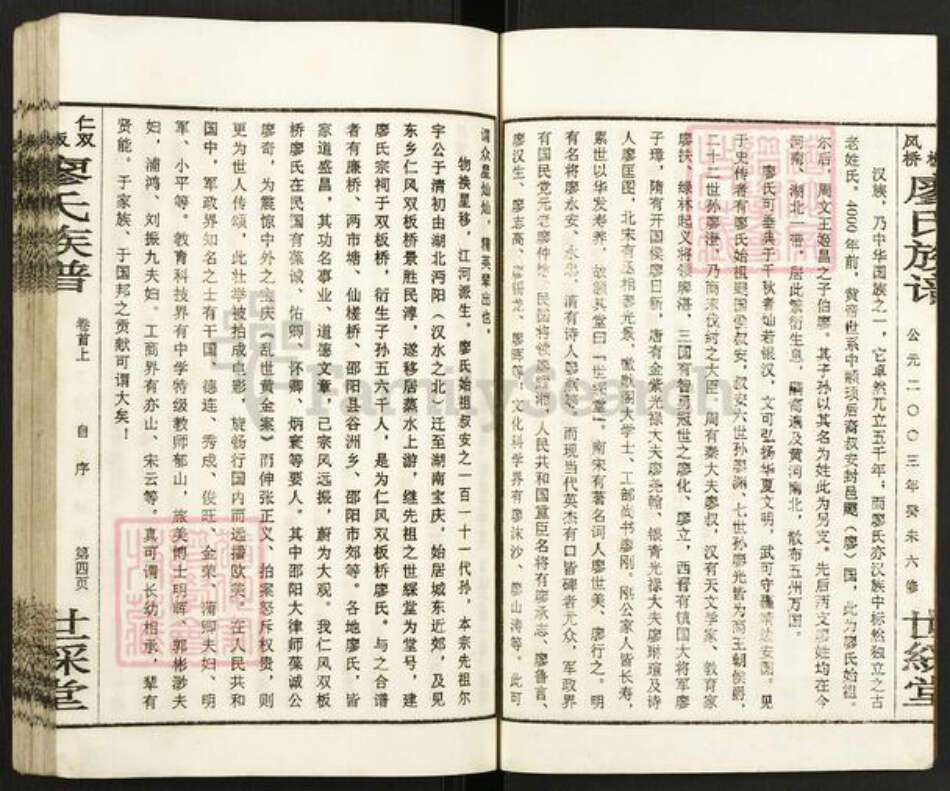 风桥
廖氏族谱
公元二〇〇三年癸未六修
世綵堂
汉族，乃中华国族之一，它卓然兀立五千年；而廖氏亦汉族中标然独立之古
老姓氏。4000年前，黄帝世系中颛顼后裔叔安封邑飂（廖）国，此为廖氏始祖。
尔后，周文王姬昌之子伯廖。其子孙以其名为姓此为另支。先后两支廖姓均在今
河南、湖北一带，居此繁衍生息，嗣裔遍及黄河南北，散布五州万国。
廖氏可垂典于千秋者灿若银汉，文可弘扬华夏文明，武可守疆靖边安国。见
于史传者有廖氏始祖飂国叔安，叔安六世孙廖渊、七世孙廖光皆为商王朝侯爵，
二十二世孙廖湛，乃商末伐纣之大臣，周有秦大夫廖叔，汉有天文学家、教育家
廖扶、绿林起义将领廖湛，三国有智勇冠世之廖化、廖立，西晋有镇国大将军廖
子璋，隋有开国侯廖日新，唐有金紫光禄大夫廖尧翰、银青光禄大夫廖琳瑄及诗
人廖匡图，北宋有丞相廖光景、徽猷阁大学士、工部尚书廖刚。刚公家人皆长寿，
累世以华发寿养，故额其堂曰「世綵堂」。南宋有著名词人廖世美、廖行之。明
有名将廖永安、永忠，清有诗人廖燕等，而现当代英杰有口皆碑者尤众，军政界
有国民党元老廖仲恺，民国将领廖耀湘，人民共和国重臣名将有廖承志、廖鲁言、
廖汉生、廖志高、廖锡龙、廖晖等，文化科学界有廖沫沙、廖山涛等。此可
谓众星灿灿，精英辈出也。
物换星移，江河派生。廖氏始祖叔安之一百一十一代孙，本宗先祖尔
宇公于清初由湖北沔阳（汉水之北）迁至湖南宝庆，始居城东近郊，及见
东乡仁风双板桥景胜民淳，遂移居蒸水上游，继先祖之世綵堂为堂号，建
廖氏宗祠于双板桥，衍生子孙五六千人，是为仁风双板桥廖氏。与之合谱
者有廉桥、两市塘、仙槎桥、邵阳县谷洲乡、邵阳市郊等。各地廖氏，皆
家道盛昌，其功名事业、道德文章，己宗风远振，蔚为大观。我仁风双板
桥廖氏在民国有葆诚、佑卿、怀卿、炳寰等要人。其中邵阳大律师葆诚公
廖奇，为震惊中外之宝庆《乱世黄金案》而伸张正义、拍案怒斥权贵，则
更为世人传颂，此壮举被拍成电影，旋畅行国内而远播欧美。在人民共和
国中，军政界知名之士有干国、德连、秀成、俊旺、金荣、清卿夫妇、明
军、小平等。教育科技界有中学特级教师郁山，旅美博士明晖、郭彬渺夫
妇，浦鸿、刘振九夫妇。工商界有亦山、宋云等。真可谓长幼相承，辈有
贤能。于家族、于国邦之贡献可谓大矣！
仁双
廖氏族谱
卷首上
自序
第四页
世綵堂
FamilySearch